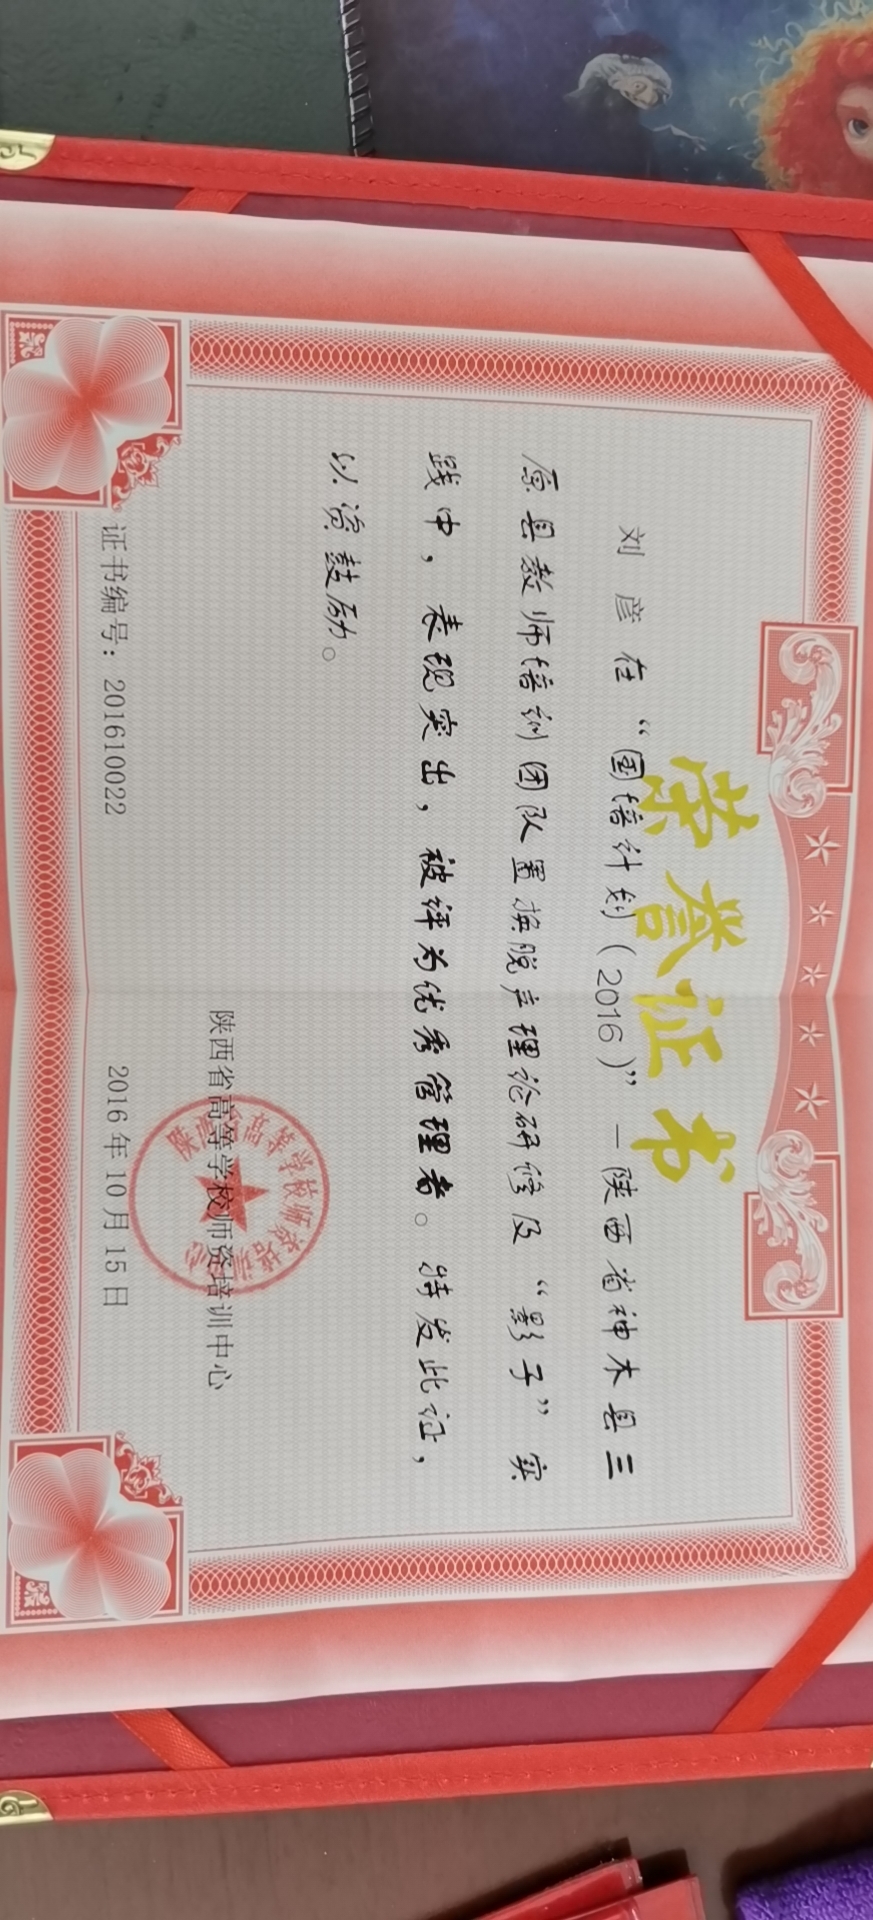 荣誉证书
刘彦在“国培计划(2016)”—陕西省神木县三
原县教师培训团队置换脱产理论研修及“影子”实
践中，表现突出，被评为优秀管理者。特发此证，
以资鼓励。
陕西省高等学校师资培训中心
陕西省高等学校师资培训中心
证书编号：201610022
2016年10月15日